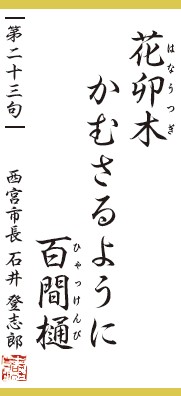 花卯木
はなうつぎ
かむさるように
百間樋
ひゃっけんび
第二十三句
西宮市長 石井 登志郎